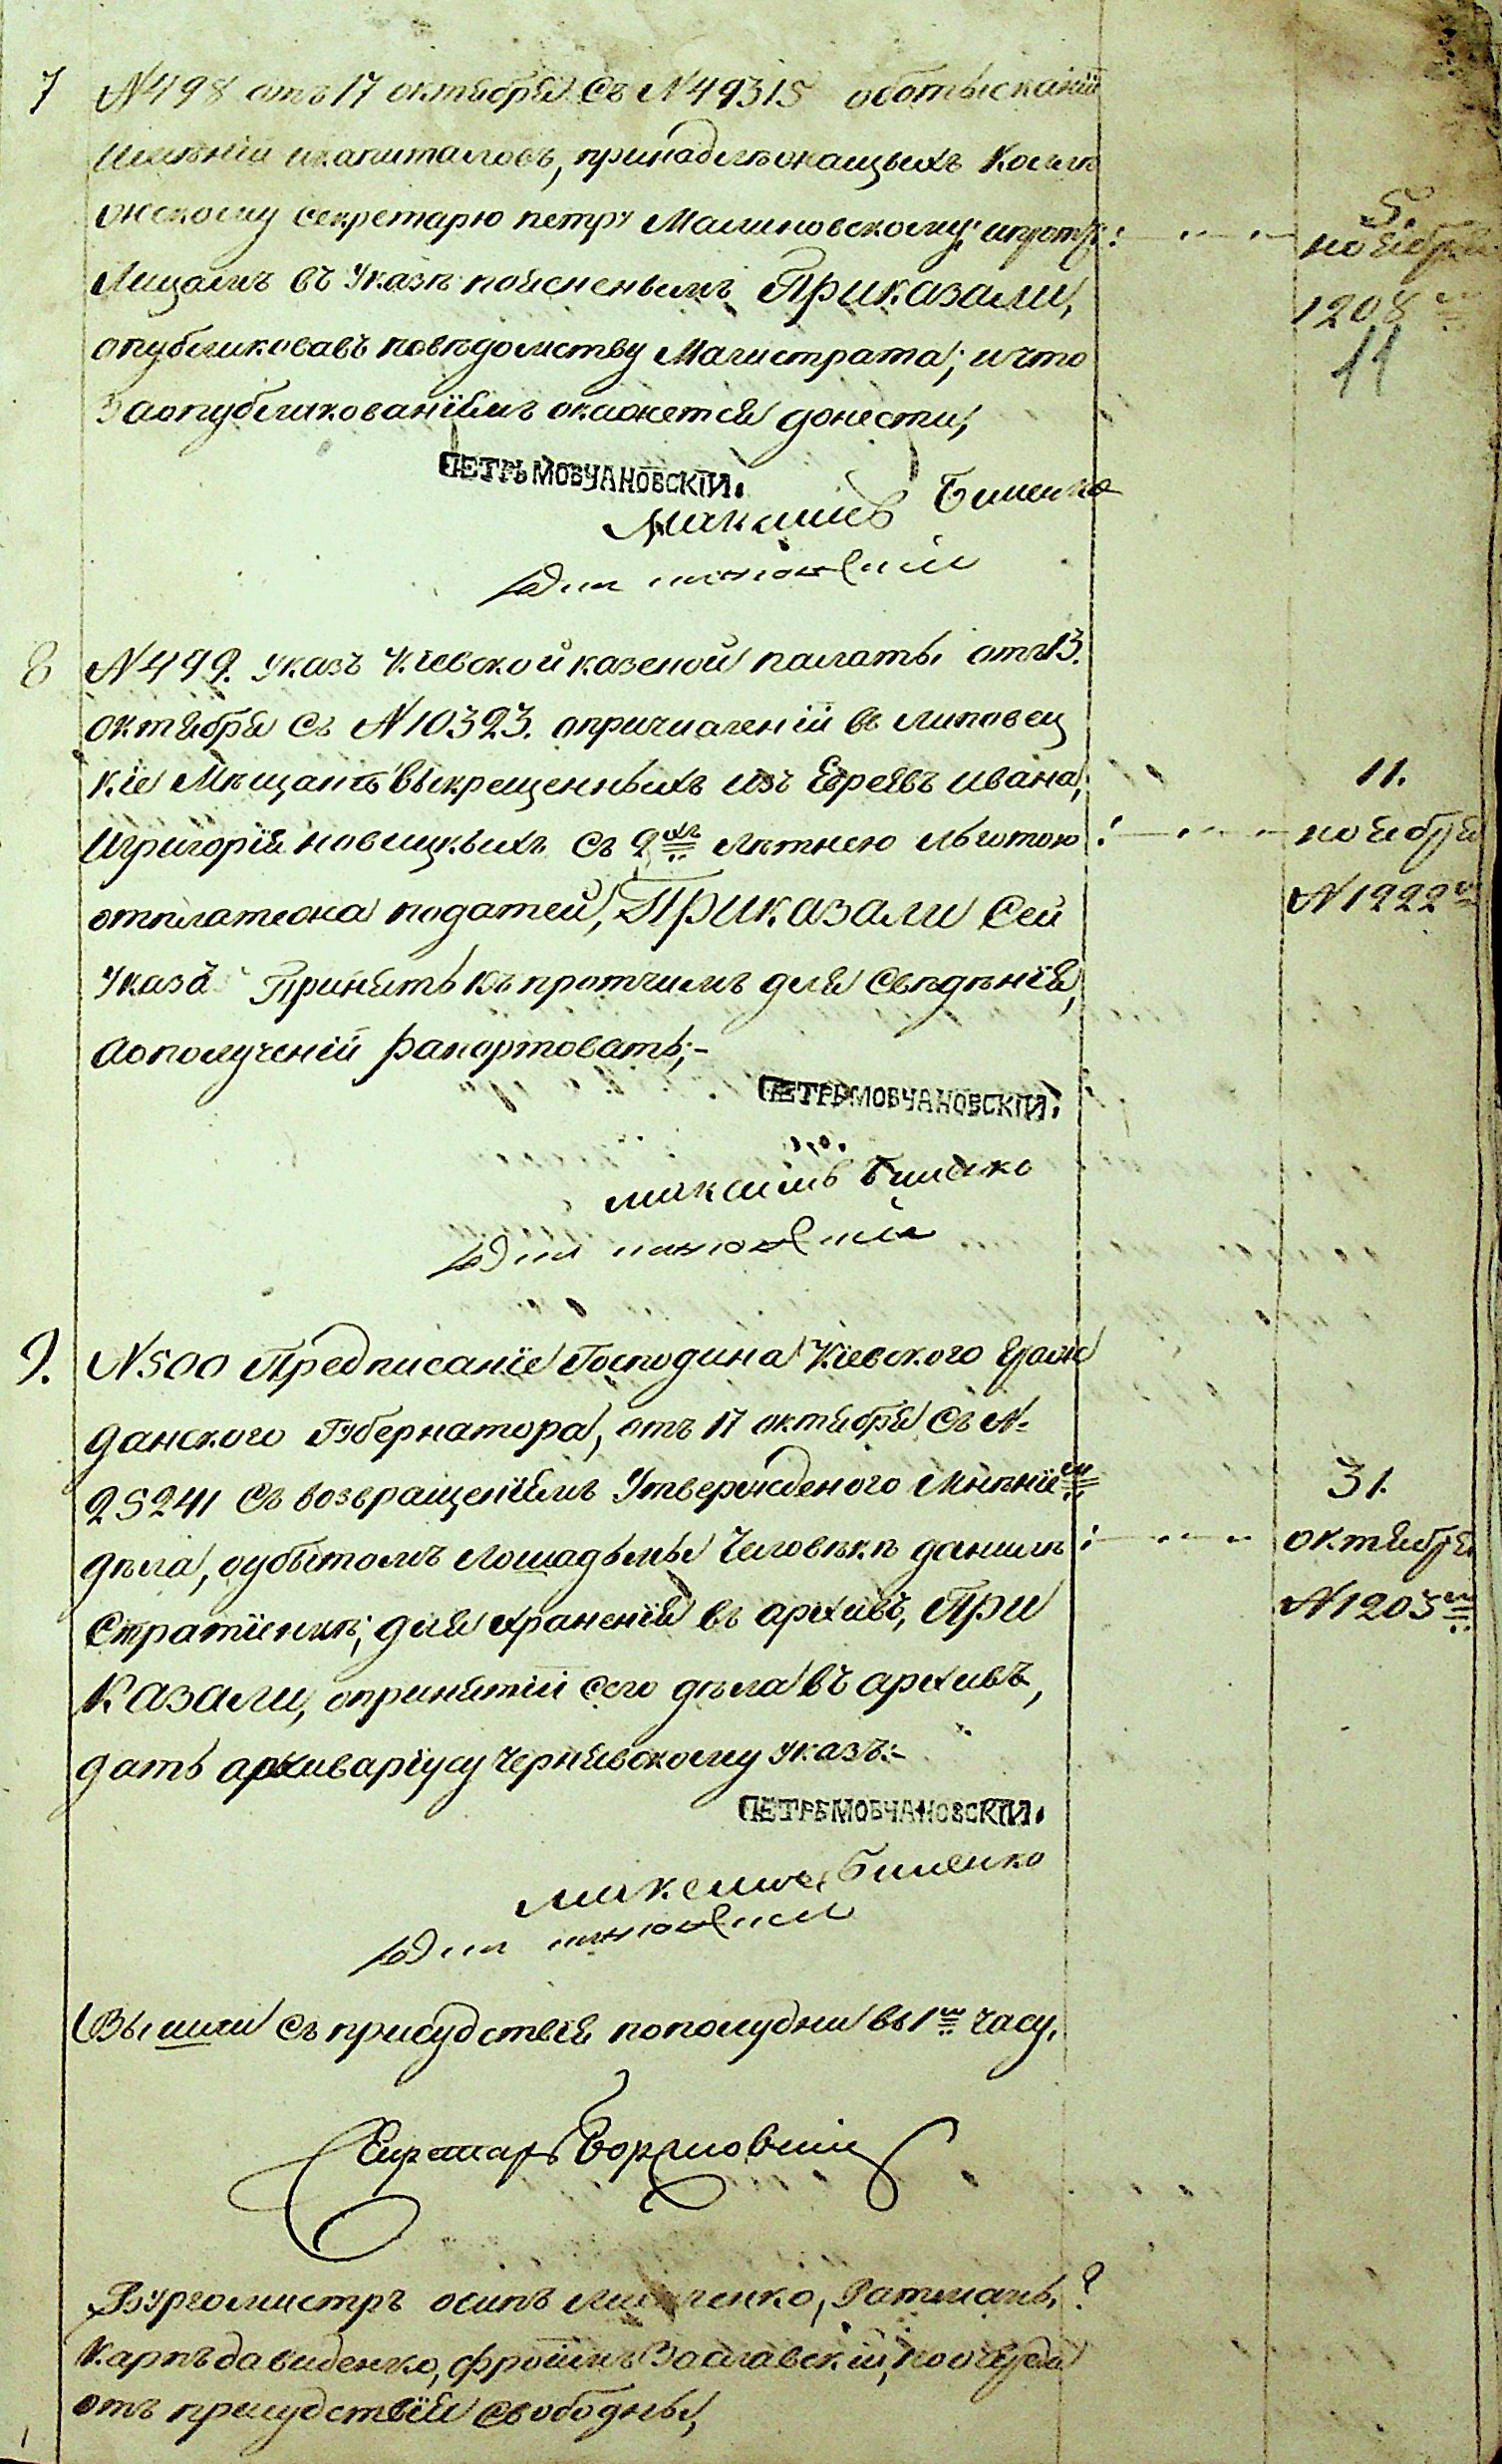 7 №498 отъ 17 октября съ №49315 оботысканіи
имѣніи икапиталовъ, принадлѣжащыхъ Колле
жскому секретарю петру Малиновскому; ипротч:
Лицамъ въ Указѣ поясненымъ Приказали,
опубликовавъ повѣдомству Магистрата; ичто
Заопубликованіемъ окажется донести;
5.
ноября
1208
11
ПЕТРЪ МОВЧАНОВСКІЙ.
Максимъ Биленко
8 №499. указъ Кіевской казеной палаты отъ 13.
октября съ №10323. опричислені́и въ липовец
кіе Мѣщанѣ выкрещенныхъ изъ Евреевъ ивана,
Игригорія новицкыхъ съ 9хъ лѣтнею льготою
отплатежа податей, Приказали Сей
Указъ Принять къ протчимъ для Свѣдѣнія,
Аополученіи рапортовать;-
11.
ноября
№1222
ПЕТРЪ МОВЧАНОВСКІЙ.
максимъ Биленко
9. №500 Предписаніе Господина Кіевского Граж
данского Губернатора, отъ 17 октября съ №
25241 съ возвращеніемъ Утвержденого Мнѣніем
дѣла, оубытомъ лошадьмы Человѣкѣ данилѣ
Стратіенкѣ; для храненія въ архивѣ, При
Казали, опринятіи сего дѣла въ архивъ,
дать архиваріусу Чернявскому указъ:-
31.
октября
№1203
ПЕТРЪ МОВЧАНОВСКІЙ.
максимъ Биленко
Вышли съ присудствія пополудни въ 1м часу.
Бургомистръ осипъ ченко, Ратманы,
Карпъ давиденко, фроимъ Заславскій, поочереди
отъ присудствія свободны,